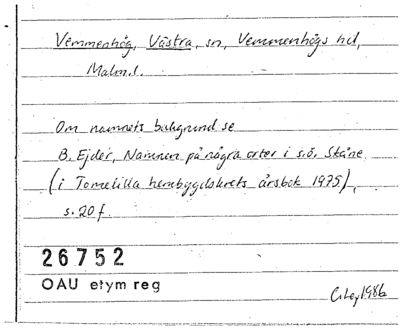 Vemmenhög, Västra, sn, Vemmenhögs hd,
Malm.l.
Om namnets bakgrund se
B. Ejder, Namnen på några orter i s.ö. Skåne
(i Tomelilla hembygdskrets årsbok 1975),
s. 20 f.
26752
OAU etym reg
1986